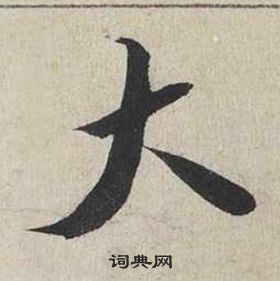 大
词典网